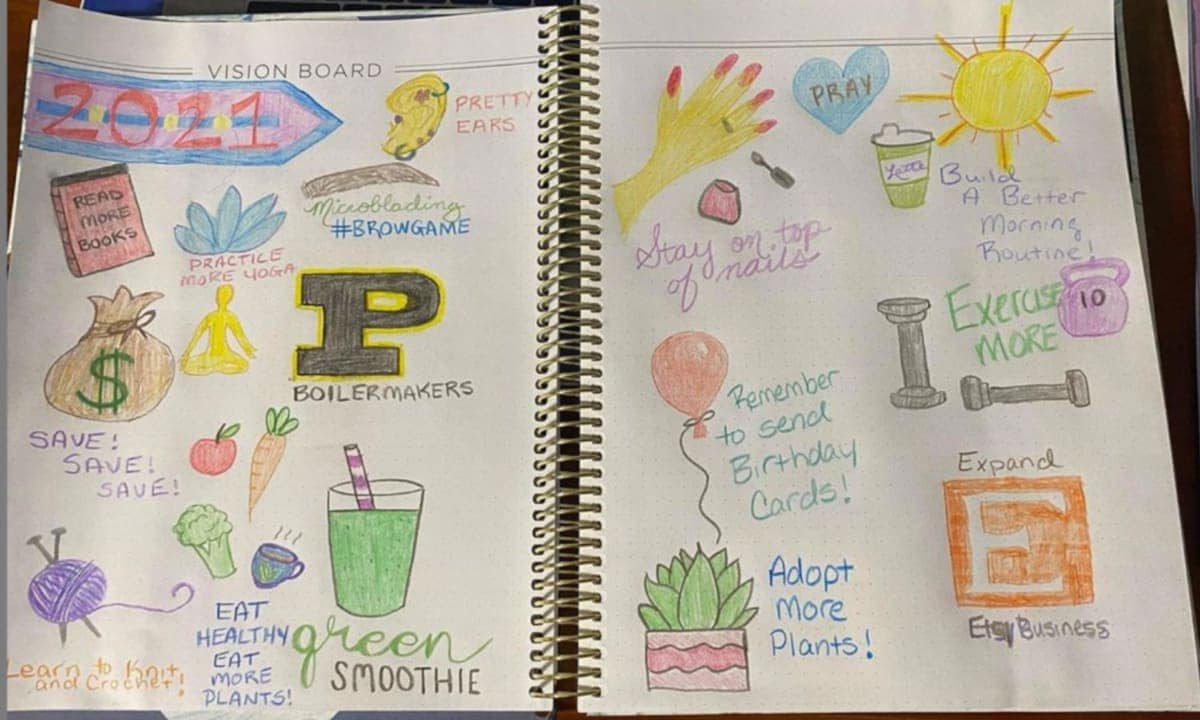 VISION BOARD
2021
PRETTY
EARS
READ
MORE
BOOKS
PRACTICE
MORE YOGA
Microblading
#BROWGAME
$
P
BOILERMAKERS
SAVE!
SAVE!
SAVE!
Learn to Knit
and Crochet!
EAT
HEALTHY
EAT
MORE
PLANTS!
green
SMOOTHIE
PRAY
Stay on top
of nails
Build
A Better
Morning
Routine!
Exercise
MORE
10
Remember
to send
Birthday
Cards!
Adopt
More
Plants!
Expand
E
Etsy Business